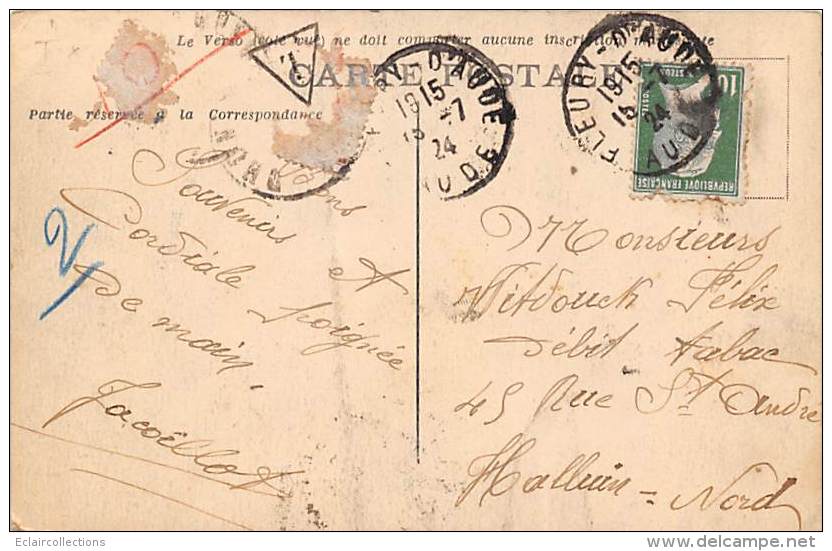 T
Le Verso (côté vue) ne doit comporter aucune inscription
CARTE POSTALE
Partie réservée à la Correspondance
FLEURY-D'AUDE
1915
15 -7
24
AUDE
FLEURY-D'AUDE
1915
24
AUDE
10
POSTES
REPUBLIQUE FRANÇAISE
T
2
Bons
Souvenirs et
Cordiale poignée
De main.
Jacoillot
Monsieurs
Witdouck Félix
Débit tabac
45 Rue St André
Halluin = Nord
Eclaircollections
www.delcampe.net